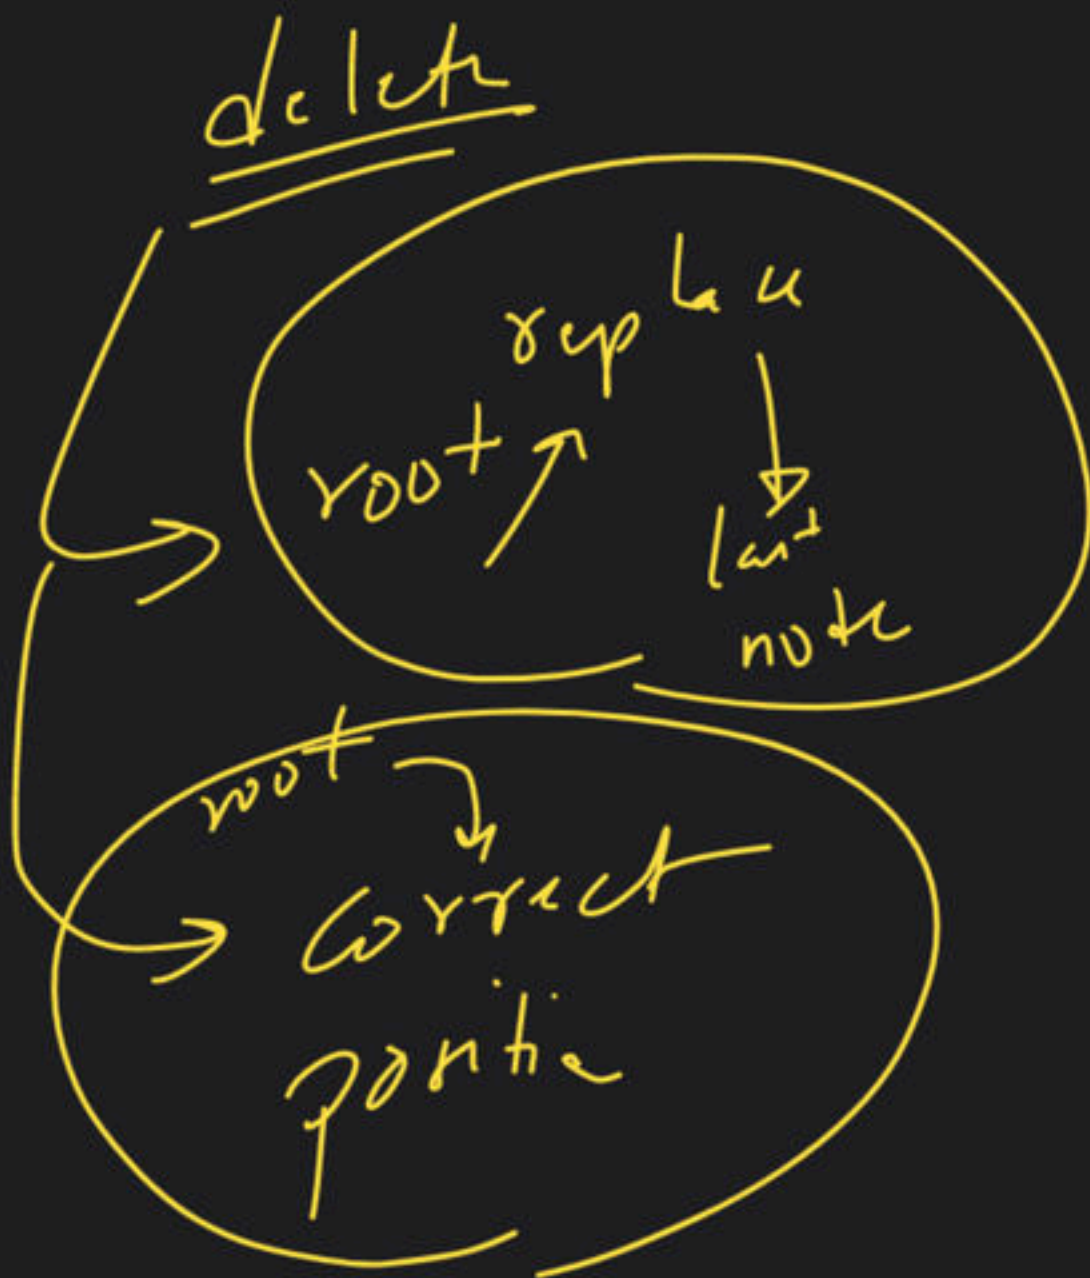 delete
replace
root
last
node
root
correct
position